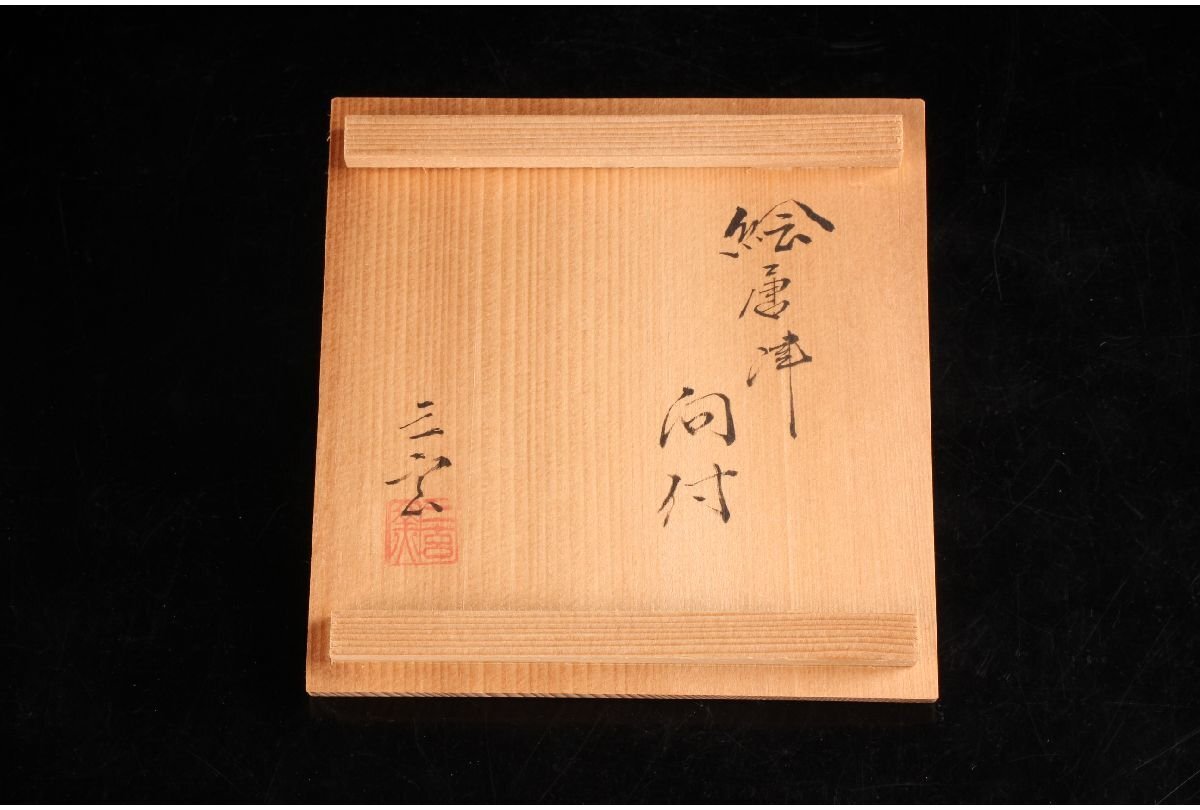 絵唐津
向付
三玄